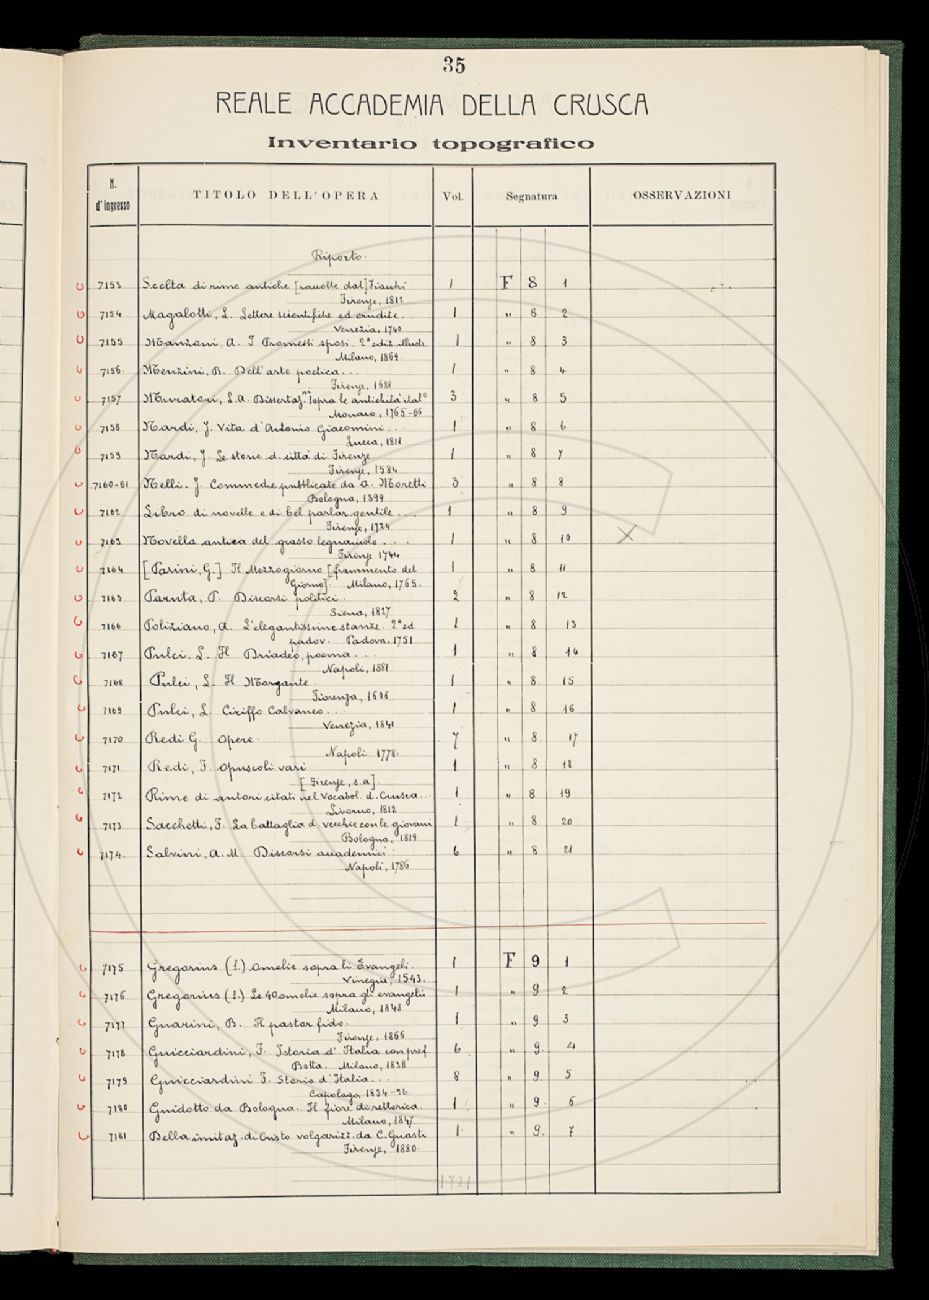 35
REALE ACCADEMIA DELLA CRUSCA
Inventario topografico
N. d'ingresso TITOLO DELL'OPERA Vol. Segnatura OSSERVAZIONI
Riporto.
7153 Scelta di rime antiche [raccolte dal] Fiacchi 1 F 8 1
Firenze, 1812
7154 Magalotti, L. Lettere scientifiche ed erudite. 1 " 8 2
Venezia, 1740
7155 Manzoni, A. I Promessi sposi. 2ª ediz. illustr. 1 " 8 3
Milano, 1869
7156 Menzini, B. Dell'arte poetica... 1 " 8 4
Firenze, 1688
7157 Muratori, L.A. Dissertaz.ni sopra le antichità ital.e 3 " 8 5
Monaco, 1765-66
7158 Nardi, J. Vita d'Antonio Giacomini.. 1 " 8 6
Lucca, 1818
7159 Nardi, J. Le storie d. città di Firenze 1 " 8 7
Firenze, 1584
7160-61 Nelli. J. Commedie pubblicate da A. Moretti 3 " 8 8
Bologna, 1899
7162 Libro di novelle e di bel parlar gentile.... 1 " 8 9
Firenze, 1724
7163 Novella antica del grasso legnaiuolo.... 1 " 8 10 X
Firenze 1744
7164 [Parini, G.] Il Mezzogiorno [frammento del 1 " 8 11
Giorno]. Milano, 1765.
7165 Paruta, P. Discorsi politici. 2 " 8 12
Siena, 1827
7166 Poliziano, A. L'elegantissime stanze. 2ª ed 1 " 8 13
padov. Padova. 1751
7167 Pulci. L. Il Driadeo, poema... 1 " 8 14
Napoli, 1881
7168 Pulci, L. Il Morgante. 1 " 8 15
Fiorenza, 1606
7169 Pulci, L. Ciriffo Calvaneo... 1 " 8 16
Venezia, 1841
7170 Redi G. Opere. 7 " 8 17
Napoli 1778.
7171 Redi, F. Opuscoli vari 1 " 8 18
[Firenze, s.a].
7172 Rime di autori citati nel Vocabol. d. Crusca... 1 " 8 19
Livorno, 1812
7173 Sacchetti, F. La battaglia d. vecchie con le giovani 1 " 8 20
Bologna, 1819
7174 Salvini, A. M. Discorsi accademici 6 " 8 21
Napoli, 1786
7175 Gregorius (S.) Omelie sopra li Evangeli. 1 F 9 1
Vinegia, 1543.
7176 Gregorius (S.) Le 40 omelie sopra gli evangelii 1 " 9 2
Milano, 1848
7177 Guarini, B. Il pastor fido. 1 " 9 3
Firenze, 1866
7178 Guicciardini, F. Istoria d'Italia con pref. 6 " 9. 4
Botta. Milano, 1838
7179 Guicciardini F. Storia d'Italia... 8 " 9. 5
Capolago, 1834-36
7180 Guidotto da Bologna. Il fiore di rettorica. 1 " 9. 6
Milano, 1847.
7181 Della imitaz. di Cristo volgarizz. da C. Guasti 1. " 9. 7
Firenze, 1880.
1721